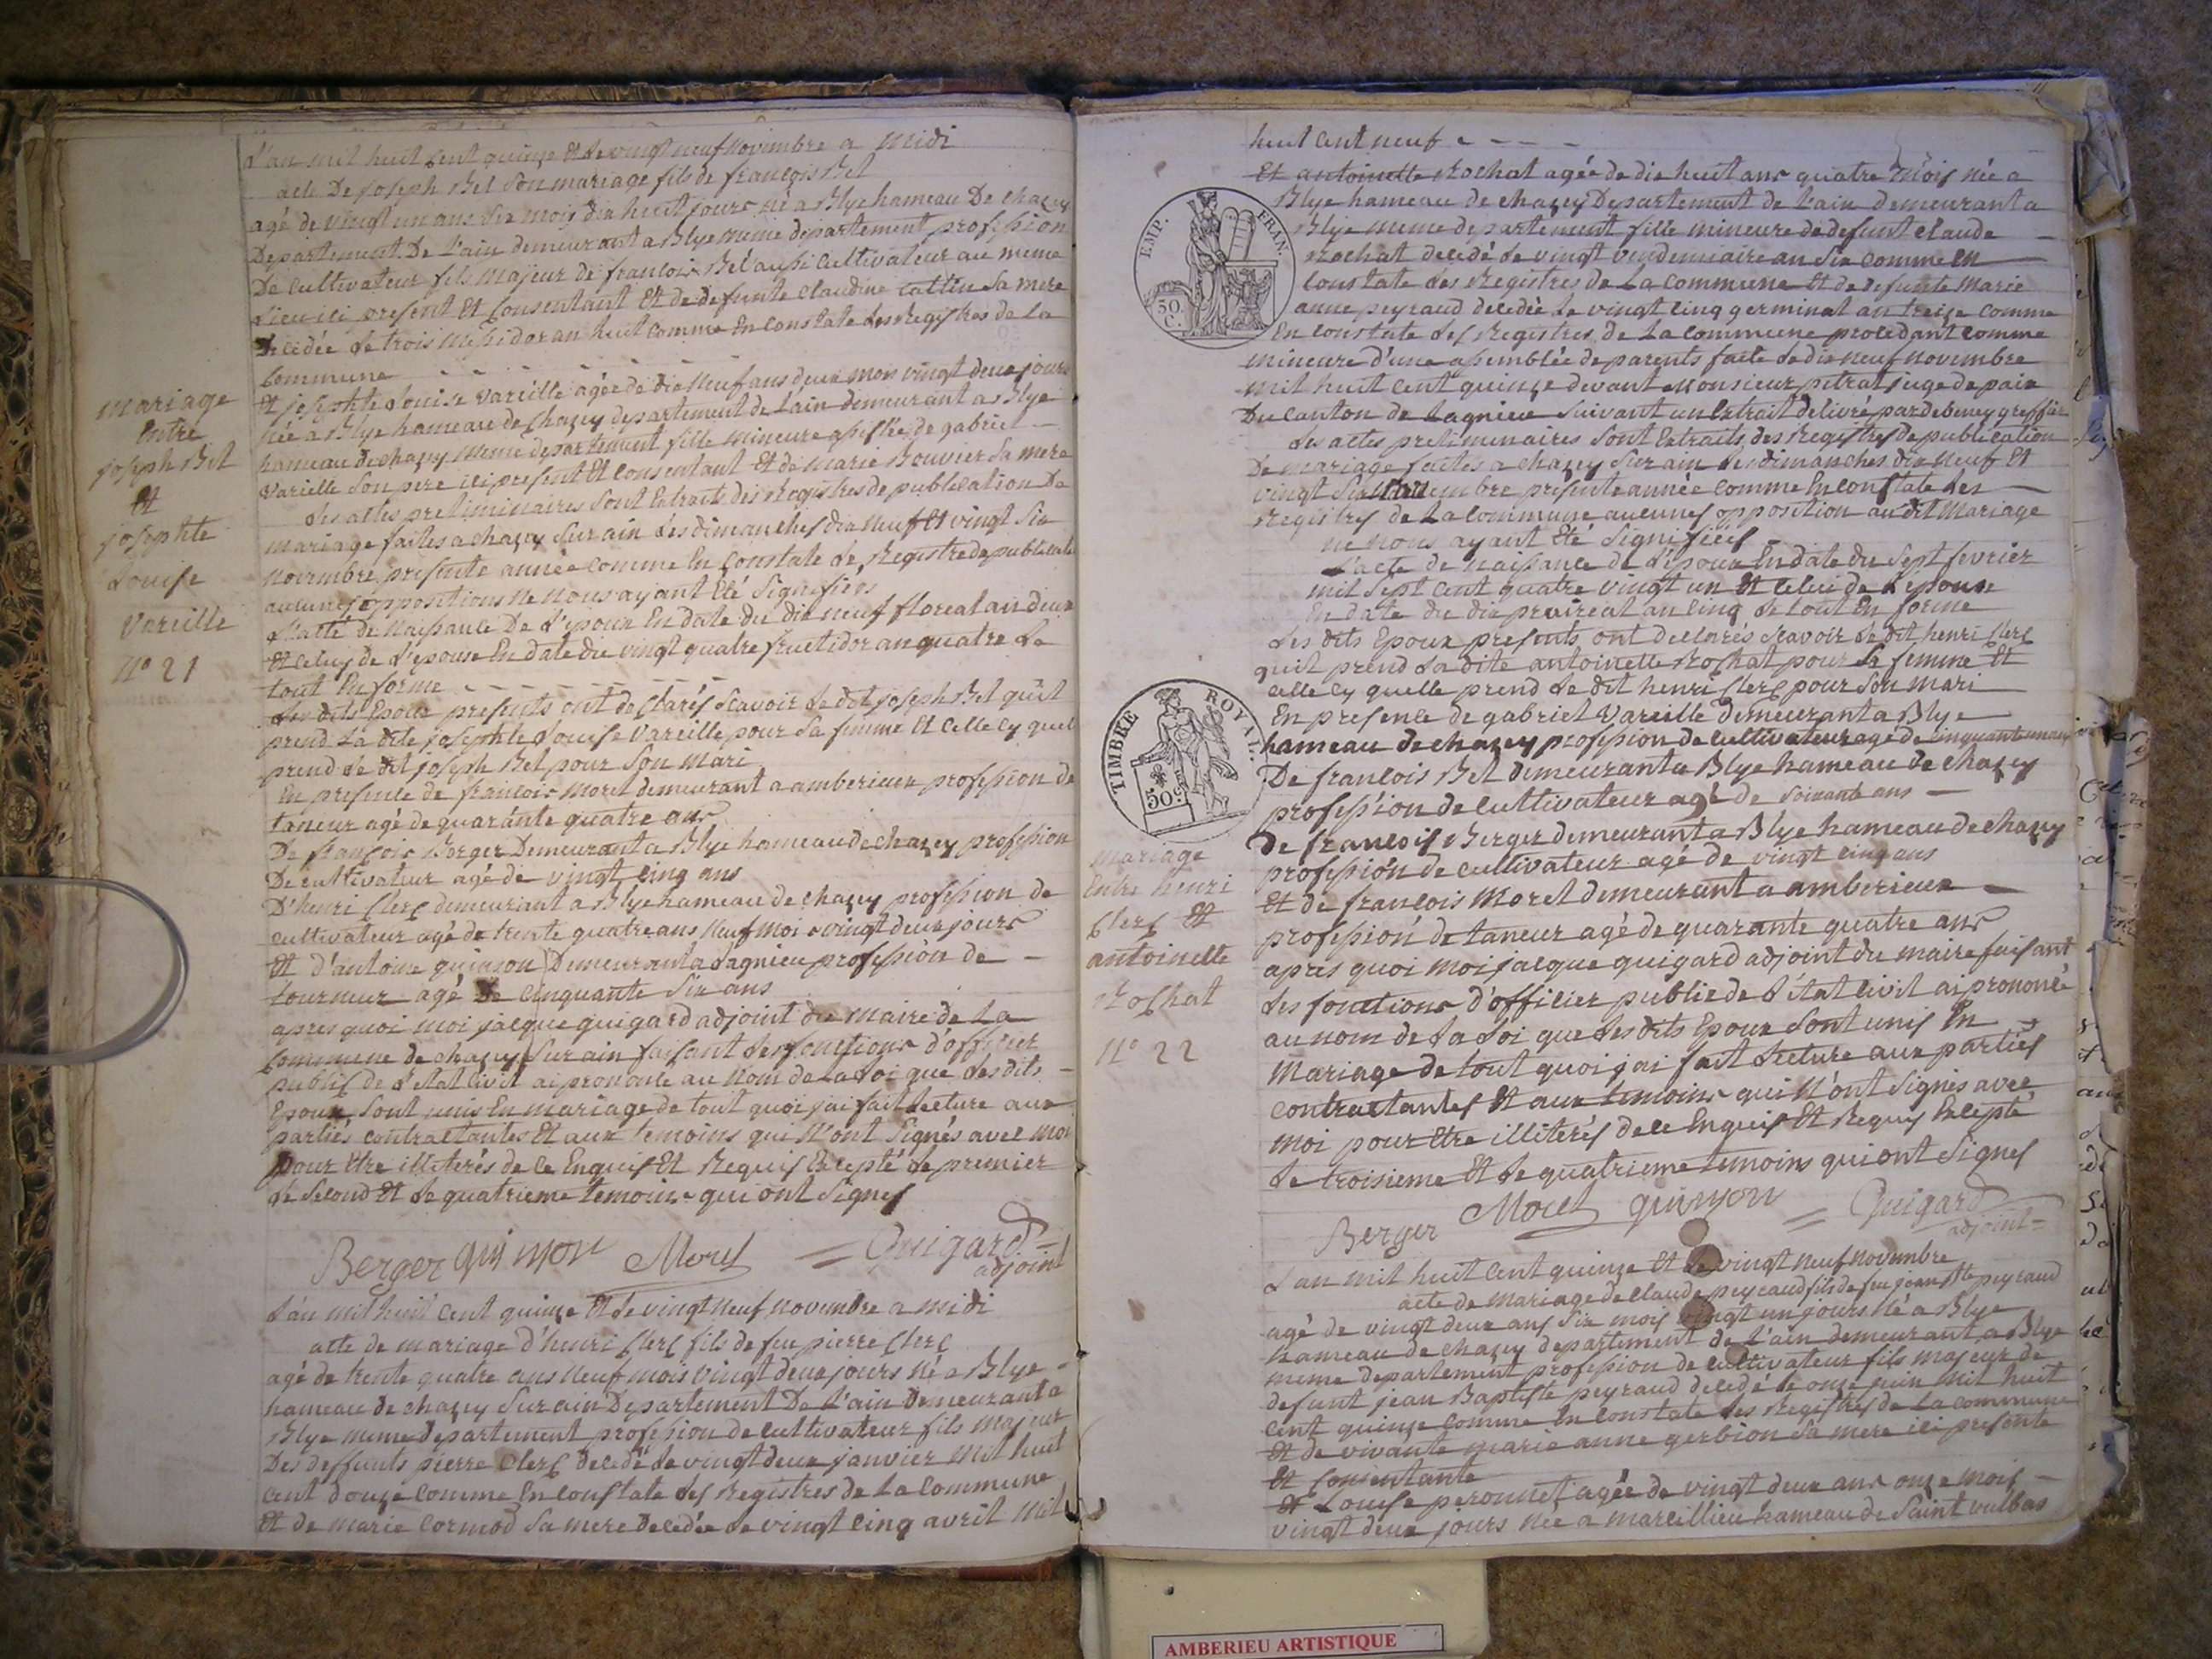 L'an mil huit cent quinze Et le vingt neuf Novembre a Midi
acte De joseph Bel son mariage fils de françois Bel
agé de vingt un ans six mois dix huit jours né a Blye hameau De chazey
Departement De L'ain demeurant a Blye meme departement profession
De Cultivateur fils majeur de francois Bel aussi Cultivateur au meme
Lieu ici present Et Consentant Et de defunte Claudine cattin sa mere
decedée le trois Messidor an huit comme En constate les Registres de La
Commune
Et josephte Louise vareille agée de dix Neuf ans deux mois vingt deux jours
née a Blye hameau de chazey departement de L'ain demeurant a Blye
hameau de chazey meme departement fille mineure assistée de gabriel
varielle son pere ici present Et consentant Et de Marie Bouvier sa mere
Les actes preliminaires sont Extraits des Registres de publication De
mariage faites a chazey sur ain les dimanches dix neuf Et vingt six
Novembre presente année comme En constate le Registre de publicat
aucunes oppositions ne nous ayant Eté signifiées
L'acte de Naissance De L'epoux En date du dix neuf floreal an deux
Et celuy de L'epouse En date du vingt quatre fructidor an quatre Le
tout En forme
Les dits Epoux presents ont declarés scavoir le dit joseph Bel qu'il
prend La dite josephte Louise Vareille pour sa femme Et celle cy quel
prend le dit joseph Bel pour son mari
En presence de francois moret demeurant a amberieux profession de
taneur agé de quarante quatre ans
De françois Berger Demeurant a Blye hameau de chazey profession
De cultivateur agé de vingt cinq ans
D'henri Clerc demeurant a Blye hameau de chazey profession de
cultivateur agé de trente quatre ans neuf moi vingt deux jours
Et d'antoine quinson Demeurant a Lagnieu profession de
tourneur agé de cinquante six ans
apres quoi moi jacque guigard adjoint du maire de La
Commune de chazey sur ain faisant les fonctions d'officier
public de L'etat civil ai prononcé au Nom de La Loi que Les dits
Epoux sont unis En mariage de tout quoi j'ai fait Lecture aux
partiés contractantes Et aux temoins qui N'ont signés avec moi
pour Etre illiterés de ce Enquis Et Requis Excepté le premier
le second Et le quatrieme temoins qui ont signés
Berger quinson Moret = Guigard
adjoint
mariage
Entre
joseph Bel
Et
josephte
Louise
Vareille
N° 21
L'an mil huit cent quinze Et le vingt neuf novembre a midi
acte de mariage d'henri Clerc fils de feu pierre Clerc
agé de trente quatre ans Neuf mois vingt deux jours Né a Blye
hameau de chazey sur ain Departement De L'ain Demeurant a
Blye meme departement profession de cultivateur fils majeur
Des deffunts pierre Clerc decedé le vingt deux janvier mil huit
cent douze comme En constate les Registres de La Commune
Et de marie Cormod sa mere Decedée le vingt cinq avril mil
huit cent neuf
Et antoinette Rochat agée de dix huit ans quatre mois née a
Blye hameau de chazey Departement de L'ain demeurant a
Blye meme departement fille mineure de defunt Claude
Rochat decedé le vingt vendemiaire an six comme en
constate les Registres de La Commune Et de defunte Marie
anne peyraud decedée le vingt cinq germinal an treize comme
En constate les Registres de La Commune procedant comme
mineure d'une assemblée de parents faite le dix neuf novembre
mil huit cent quinze devant Monsieur pitrat juge de paix
Du canton de Lagnieu suivant un Extrait delivré par debeney greffier
Les actes preliminaires sont Extraits des Registres de publication
De mariage faites a chazey sur ain les dimanches dix neuf Et
vingt six Novembre presente année comme En constate les
Registres de La Commune aucunes opposition au dit Mariage
ne nous ayant Eté signifieés
L'acte de Naissance de L'epoux En date du sept fevrier
mil sept cent quatre vingt un Et celui de L'epouse
En date du dix prairial an cinq le tout En forme
Les dits Epoux presents ont declarés scavoir le dit henri Clerc
quil prend La dite antoinette Rochat pour sa femme Et
celle cy quelle prend le dit henri Clerc pour son mari
En presence de gabriel Vareille demeurant a Blye
hameau de chazey profession de cultivateur agé de cinquante un ans
De francois Bel demeurant a Blye hameau de chazey
profession de cultivateur agé de soixante ans
De francois Berger demeurant a Blye hameau de chazey
profession de cultivateur agé de vingt cinq ans
Et de françois Moret demeurant a amberieux
profession de taneur agé de quarante quatre ans
apres quoi moi jacque guigard adjoint du maire faisant
Les fonctions d'officier public de L'état civil ai prononcé
au nom de La Loi que Les dits Epoux sont unis En
mariage de tout quoi j'ai fait Lecture aux partiés
contractantes Et aux temoins qui N'ont signés avec
moi pour Etre illiterés de ce Enquis Et Requis Excepté
Le troisieme Et le quatrieme temoins qui ont signés
Berger Moret quinson = Guigard
adjoint =
EMP. FRAN.
50. C.
TIMBRE ROYAL.
50c
mariage
Entre henri
Clerc Et
antoinette
Rochat
N° 22
L'an mil huit cent quinze Et le vingt neuf novembre
acte de mariage de claude peyraud fils de feu jean Bte peyraud
agé de vingt deux ans six mois vingt un jours Né a Blye
hameau de chazey departement de L'ain demeurant a Blye
meme departement profession de cultivateur fils majeur de
defunt jean Baptiste peyraud decedé le onze juin mil huit
cent quinze comme En constate les Registres de La commune
Et de vivante marie anne gerbion sa mere ici presente
Et consentante
Et Louise peronnet agée de vingt deux ans onze mois
vingt deux jours née a marcillieu hameau de Saint vulbas
AMBERIEU ARTISTIQUE